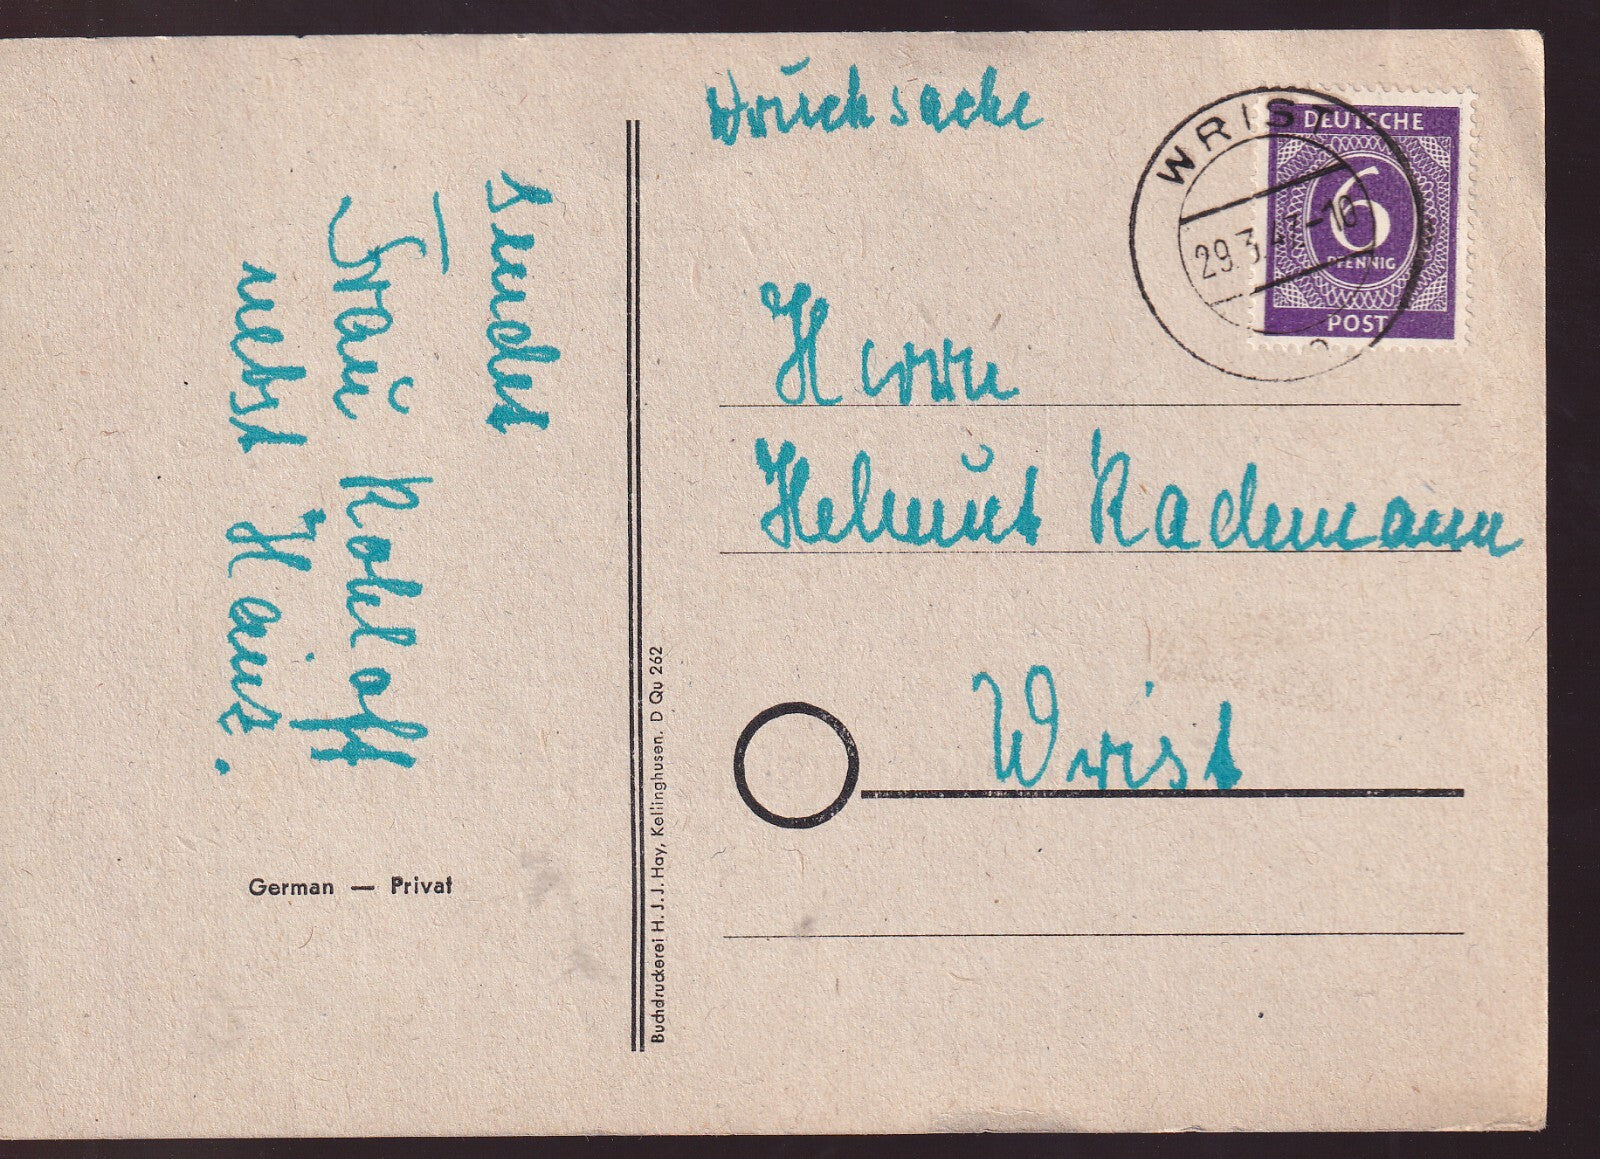 sendet
Frau Rohloff
nebst Hans.
German — Privat
Buchdruckerei H. J. J. Hay, Kellinghusen. D Qu 262
Drucksache
WRIST
29.3.47-10
DEUTSCHE
6
PFENNIG
POST
Herrn
Helmut Rademann
Wrist